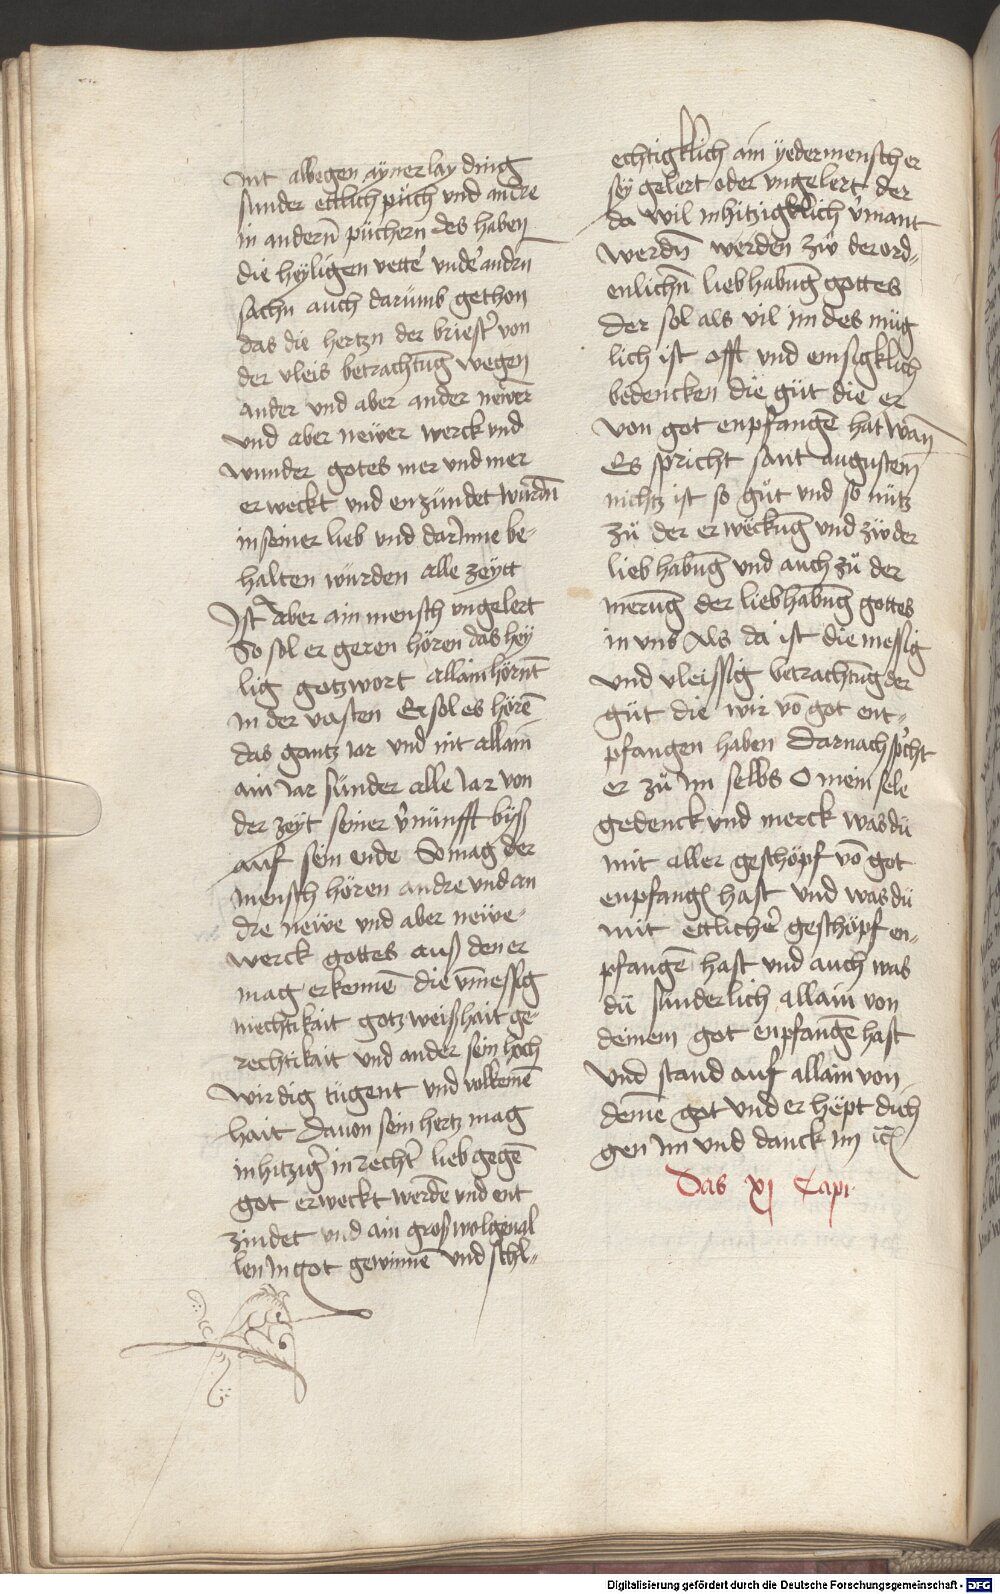 nit albegen aynerlay ding
sunder ettlich püch und andre
in andern̄ püchern des haben
die heyligen vette' unde' andrn
sachn auch darumb gethon
das die hertzn der briest' von
der vleis betrachtūg wegen
ander und aber ander newer
und aber newer werck und
wunder gotes mer und mer
erweckt und enzündet wurdn̄
in seiner lieb und dar'inne be-
halten würden alle zeytt
Ist Aber ain mensch ungelert
So sol er geren hören das hey
lig gotzwort allain hörnt
in der vasten Er sol es hörē
das gantz iar und nit allain
ain iar sünder alle iar von
der zeyt seiner v'nünfft byß
auf sein ende So mag der
mensch hören andre und an
dre newe und aber newe-
werck gottes auß den er
mag erkennē die vn̄messig
mechtikait gotz weißhait ge-
rechtikait und ander sein hoch
wirdig tügent und volkemē
hait Davon sein hertz mag
in hitzig' in recht' lieb gegē
got erweckt werdē und ent
zindet und ain groß wolgeual
len in got gewinnē und schl-
echtigklich ain yeder mensch er
sey gelert oder ungelert der
da wil inhitzigklich v'mant
werdn̄ werden zw der ord-
enlichn̄ liebhabūg gottes
der sol als vil im des müg
lich ist offt und emsigklich
bedencken die güt die er
von got enpfangē hat wān
Es spricht sant augustein
nichtz ist so güt und so nütz
zü der erweckūg und zw der
liebhabūg und auch zü der
merūg der liebhabūg gottes
in uns Als da ist die messig
und vleissig betrachtūg der
güt die wir vō got ent-
pfangen haben Darnach sp'cht
er zü im selbs O mein sele
gedenck und merck was dü
mit aller geschöpf vō got
enpfangē hast und was dü
mit ettlicher geschöpf en-
pfangē hast und auch was
dü sunderlich allain von
deinem got enpfangē hast
und stand auf allain von
demē got und er hept dich
gen im und danck im etc
Das xj Capi
Digitalisierung gefördert durch die Deutsche Forschungsgemeinschaft - DFG